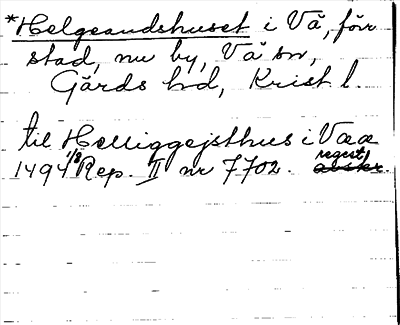 *Helgeandshuset i Vä, förr
stad, nu by, Vä sn,
Gärds hd, Krist l.
til Helliggejsthus i Væa
1494 1/8 Rep. II nr 7702. regest.